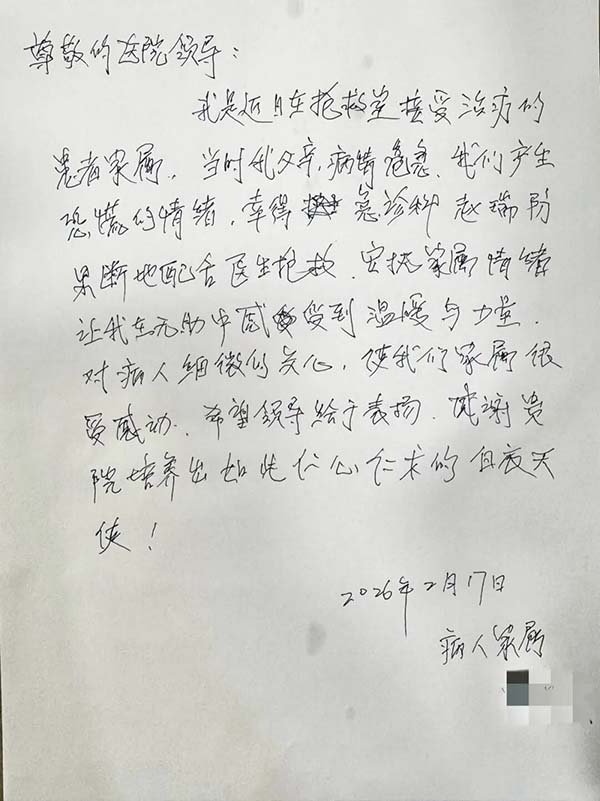 尊敬的医院领导：
我是近日在抢救室接受治疗的
患者家属，当时我父亲病情危急，我们产生
恐慌的情绪，幸得急诊科赵瑞阳
果断地配合医生抢救，安抚家属情绪
让我在无助中感受到温暖与力量，
对病人细微的关心，使我们家属很
受感动，希望领导给于表扬，感谢贵
院培养出如此仁心仁术的白衣天
使！
2026年2月17日
病人家属